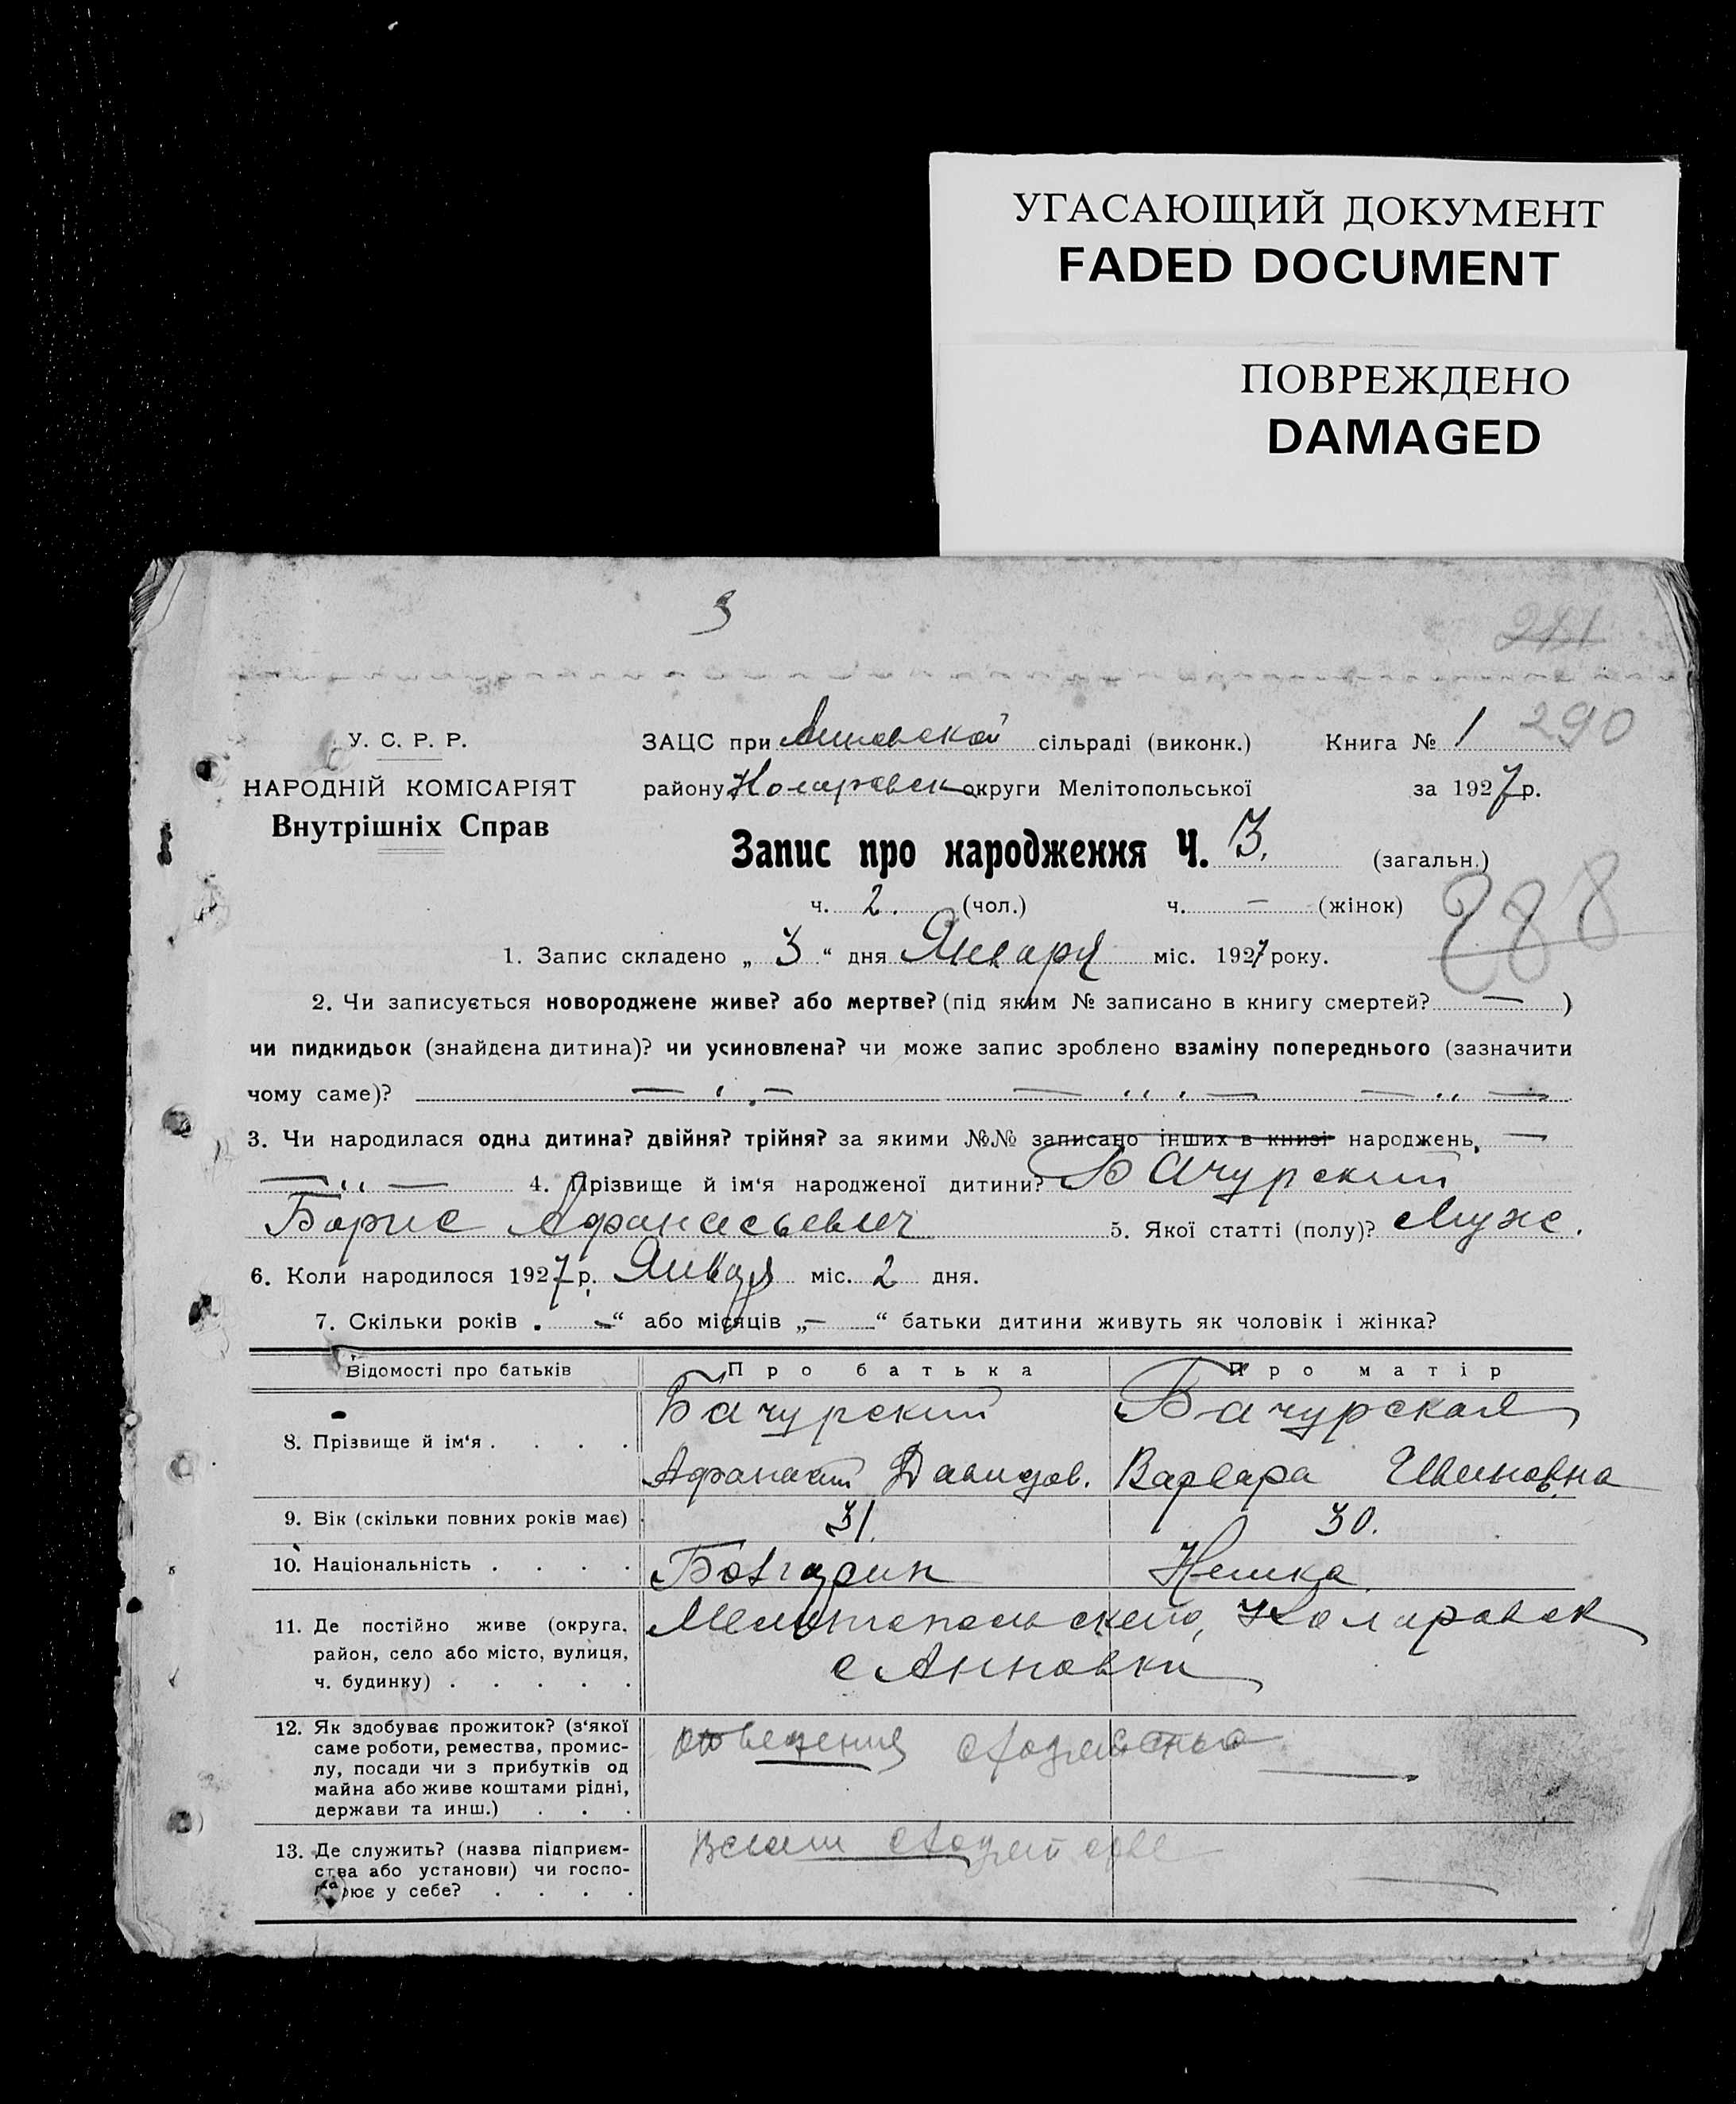 УГАСАЮЩИЙ ДОКУМЕНТ
FADED DOCUMENT
ПОВРЕЖДЕНО
DAMAGED
3
211
290
У. С. Р. Р.
НАРОДНІЙ КОМІСАРІЯТ
Внутрішніх Справ
ЗАЦС при Анновской сільраді (виконк.) Книга № 1
району Коларовск округи Мелітопольської за 1927 р.
Запис про народження Ч. 3. (загальн.)
288
ч. 2. (чол.) ч. — (жінок)
1. Запис складено „ 3 “ дня Января міс. 1927 року.
2. Чи записується новороджене живе? або мертве? (під яким № записано в книгу смертей? — )
чи пидкидьок (знайдена дитина)? чи усиновлена? чи може запис зроблено взаміну попереднього (зазначити
чому саме)? — „ — — „ — — „ —
3. Чи народилася одна дитина? двійня? трійня? за якими №№ записано інших в книзі народжень, —
— „ — 4. Прізвище й ім'я народженої дитини? Бачурский
Борис Афанасьевич 5. Якої статті (полу)? Муж.
6. Коли народилося 1927 р. Января міс. 2 дня.
7. Скільки років „ — “ або місяців „ — “ батьки дитини живуть як чоловік і жінка?
Відомості про батьків Про батька Про матір
8. Прізвище й ім'я . . . . Бачурский Бачурская
Афанасий Давидов. Варвара Ивановна
9. Вік (скільки повних років має) 31. 30.
10. Національність . . . . Болгарин Немка
11. Де постійно живе (округа, район, село або місто, вулиця, ч. будинку) . . . . . Мелитопольского, Коларовск
с Анновки
12. Як здобуває прожиток? (з'якої саме роботи, ремества, промислу, посади чи з прибутків од майна або живе коштами рідні, держави та инш.) . . . от ведения
13. Де служить? (назва підприємства або установи) чи господарює у себе? . . . .